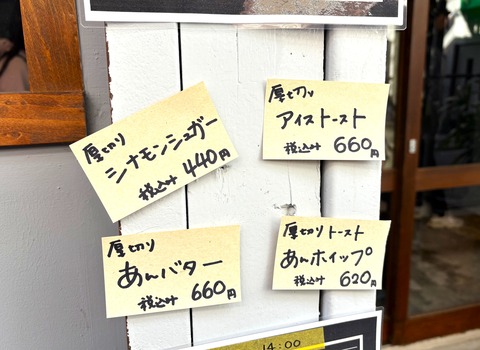 厚切り
シナモンシュガー
税込み 440円
厚切り
アイストースト
税込み 660円
厚切り
あんバター
税込み 660円
厚切りトースト
あんホイップ
税込み 620円
14:00